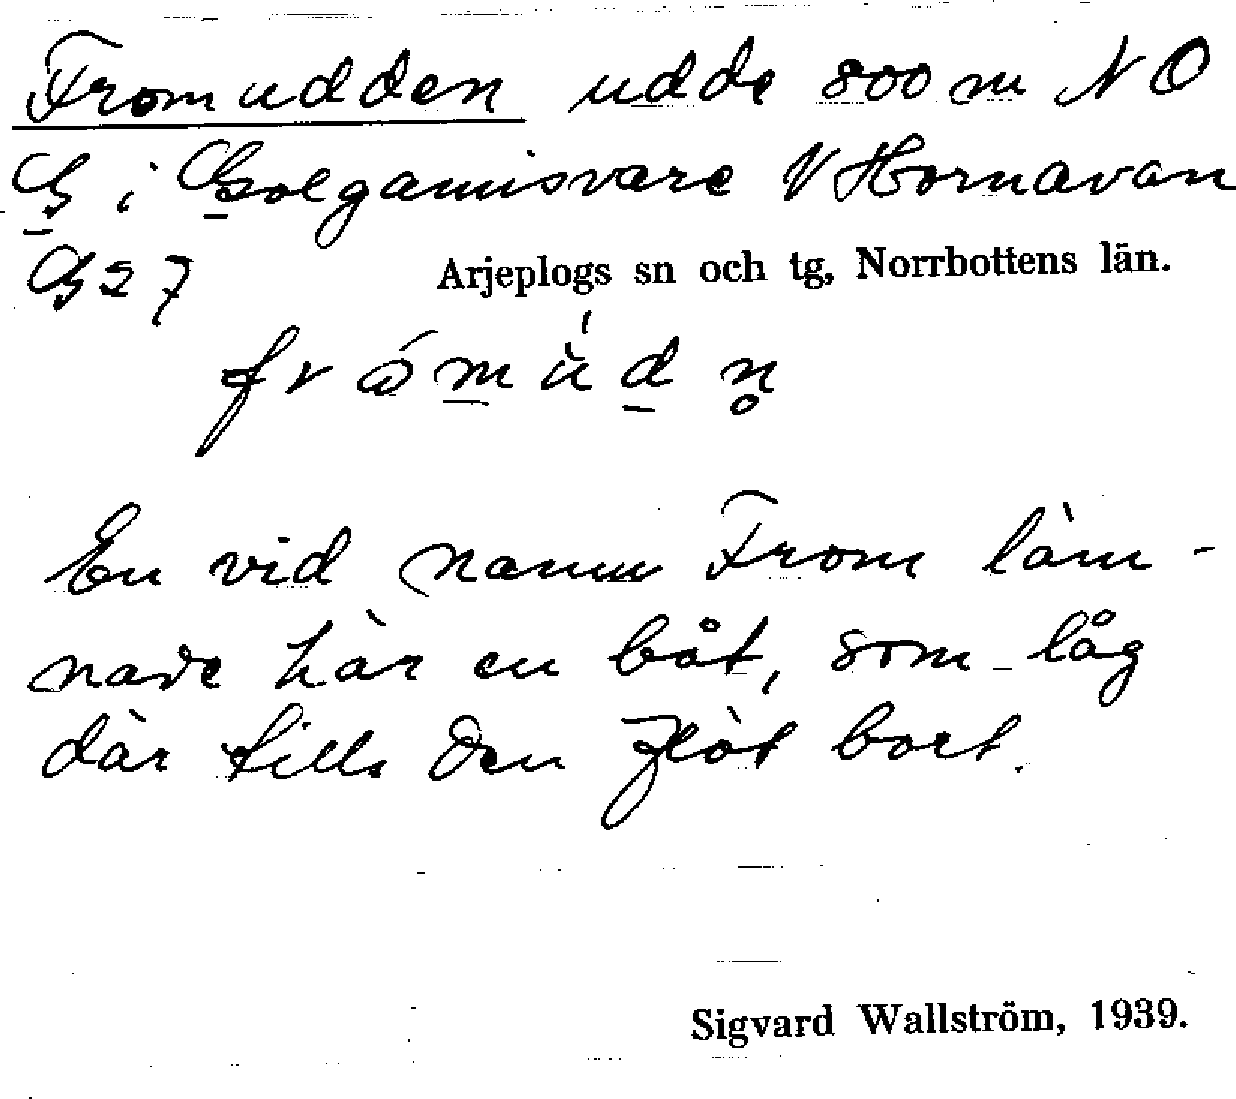 Fromudden udde 800 m NO
G i Golgamisvare V Hornavan
G 27 Arjeplogs sn och tg, Norrbottens län.
En vid namn From läm-
nade här en båt, som låg
där tills den flöt bort.
Sigvard Wallström, 1939.